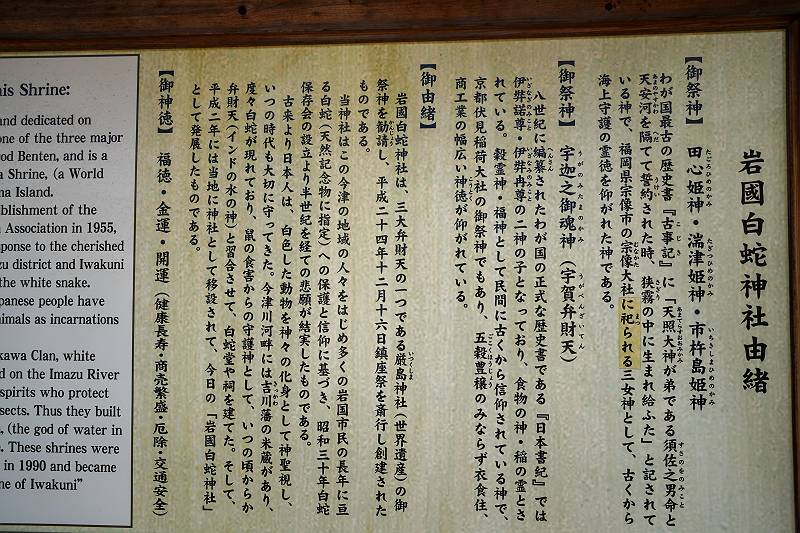 岩國白蛇神社由緒
【御祭神】 田心姫神・湍津姫神・市杵島姫神
わが国最古の歴史書『古事記』に「天照大神が弟である須佐之男命と
天安河を隔てて誓約された時、狭霧の中に生まれ給ふた」と記されて
いる神で、福岡県宗像市の宗像大社に祀られる三女神として、古くから
海上守護の霊徳を仰がれた神である。
【御祭神】 宇迦之御魂神（宇賀弁財天）
八世紀に編纂されたわが国の正式な歴史書である『日本書紀』では
伊弉諾尊・伊弉冉尊の二神の子となっており、食物の神・稲の霊とさ
れている。穀霊神・福神として民間に古くから信仰されている神で、
京都伏見稲荷大社の御祭神でもあり、五穀豊穣のみならず衣食住、
商工業の幅広い神徳が仰がれている。
【御由緒】
岩國白蛇神社は、三大弁財天の一つである厳島神社（世界遺産）の御
祭神を勧請し、平成二十四年十二月十六日鎮座祭を斎行し創建された
ものである。
当神社はこの今津の地域の人々をはじめ多くの岩国市民の長年に亘
る白蛇（天然記念物に指定）への保護と信仰に基づき、昭和三十年白蛇
保存会の設立より半世紀を経ての悲願が結実したものである。
古来より日本人は、白色した動物を神々の化身として神聖視し、
いつの時代も大切に守ってきた。今津川河畔には吉川藩の米蔵があり、
度々白蛇が現れており、鼠の食害からの守護神として、いつの頃からか
弁財天（インドの水の神）と習合させて、白蛇堂や祠を建てた。そして、
平成二年には当地に神社として移設されて、今日の「岩國白蛇神社」
として発展したものである。
【御神徳】 福徳・金運・開運（健康長寿・商売繁盛・厄除・交通安全）
his Shrine:
and dedicated on
one of the three major
od Benten, and is a
a Shrine, (a World
ma Island.
tablishment of the
Association in 1955,
sponse to the cherished
zu district and Iwakuni
the white snake.
panese people have
nimals as incarnations
kawa Clan, white
d on the Imazu River
spirits who protect
sects. Thus they built
, (the god of water in
. These shrines were
in 1990 and became
ne of Iwakuni”